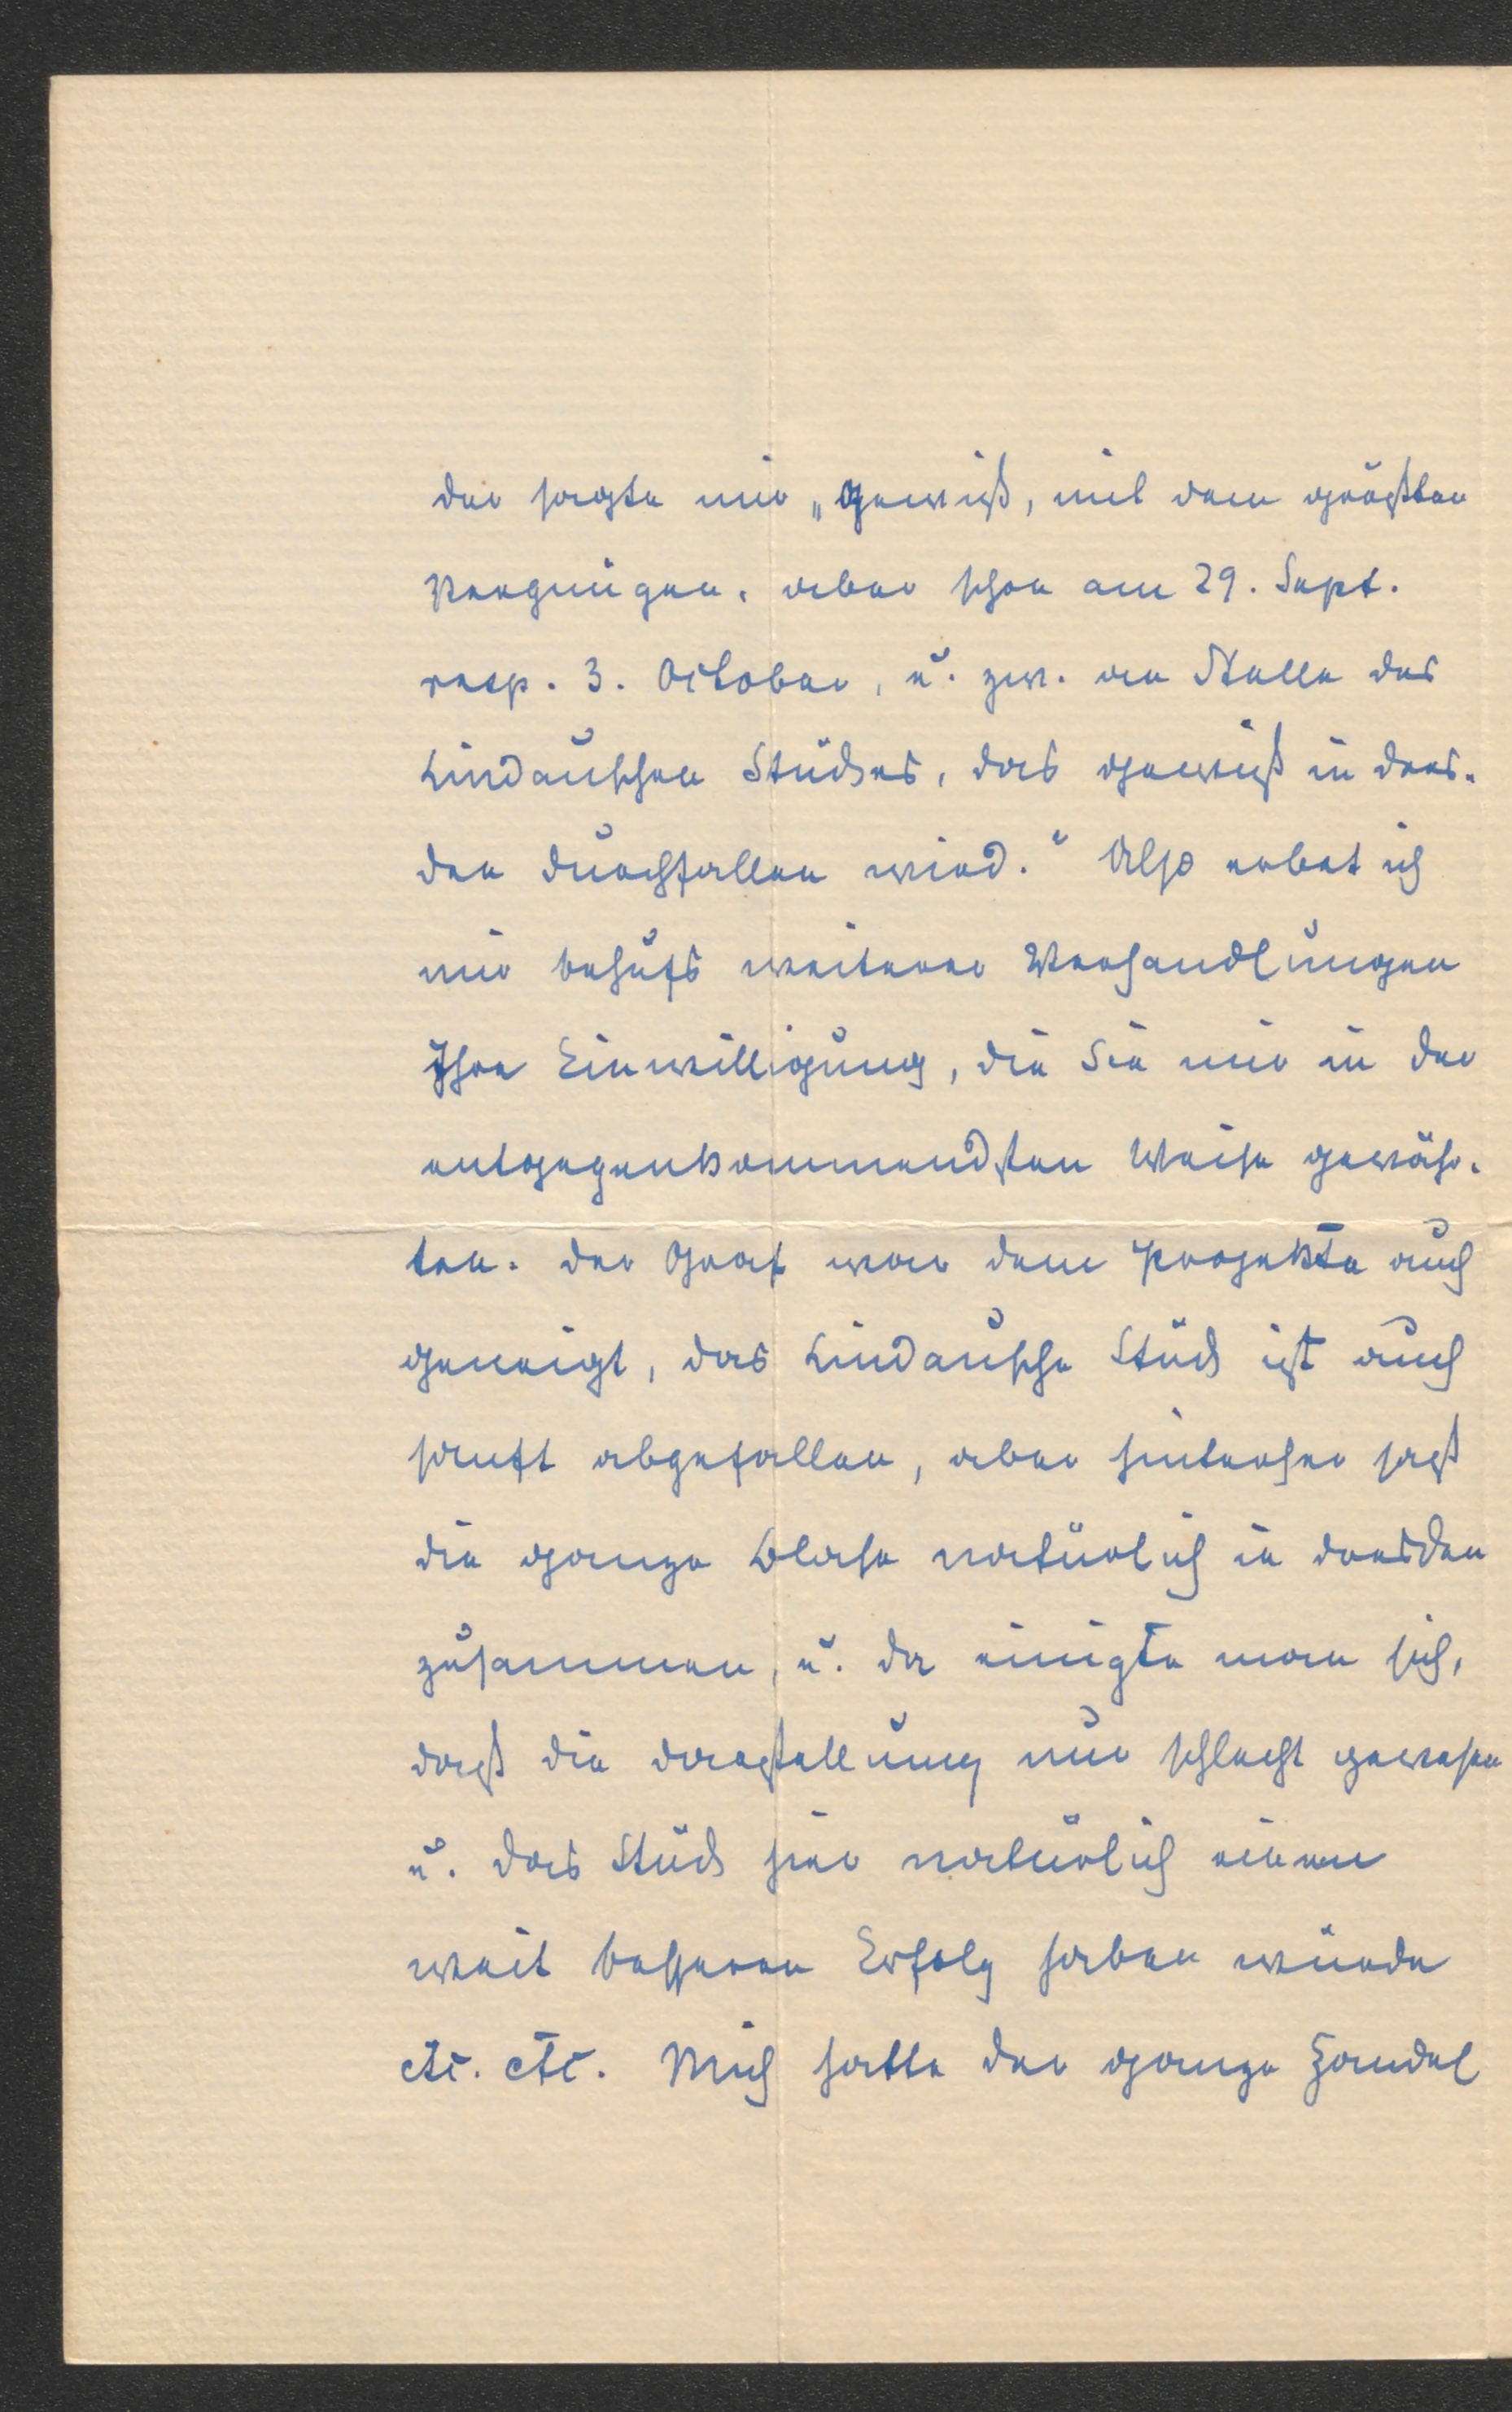 der sagte mir „Gewiß, mit dem größten
Vergnügen, aber schon am 29. Sept.
resp. 3. October, u. zw. an Stelle des
Lindauschen Stückes, das gewiß in Dres-
den durchfallen wird.“ Also erbat ich
mir behufs weiterer Verhandlungen
Ihre Einwilligung, die Sie mir in der
entgegenkommendsten Weise gewähr-
ten. Der Graf war dem Projekte auch
geneigt, das Lindausche Stück ist auch
sanft abgefallen, aber hinterher saß
die ganze Blase natürlich in Dresden
zusammen, u. da einigte man sich,
daß die Darstellung nur schlecht gewesen
u. das Stück hier natürlich einen
weit besseren Erfolg haben würde
etc. etc. Mich hatte der ganze Handel